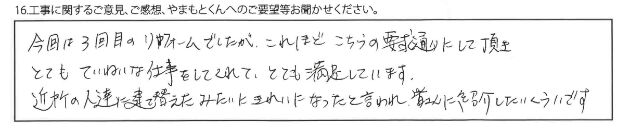 16.工事に関するご意見、ご感想、やまもとくんへのご要望等お聞かせください。
今回は3回目のリフォームでしたが、これほどこちらの要求通りにして頂き
とてもていねいな仕事をしてくれて、とても満足しています。
近所の人達に建て替えたみたいにきれいになったと言われ、皆さんに紹介したいくらいです